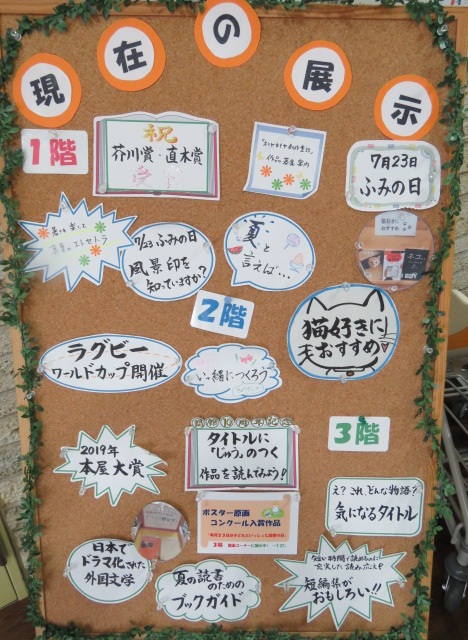 現在の展示
1階
祝
芥川賞・直木賞
作品募集案内
7月23日
ふみの日
7/23 ふみの日
風景印を
知っていますか?
夏と
言えば…
2階
猫好きに
もおすすめ
ラグビー
ワールドカップ開催
いっ緒につくろう
3階
タイトルに
「じゅう」のつく
作品を読んでみよう!
2019年
本屋大賞
え? これ、どんな物語?
気になるタイトル
ポスター原画
コンクール入賞作品
日本で
ドラマ化された
外国文学
夏の読書
のための
ブックガイド
短い時間で読めるのに
充実した読み応え?
短編集が
おもしろい!!